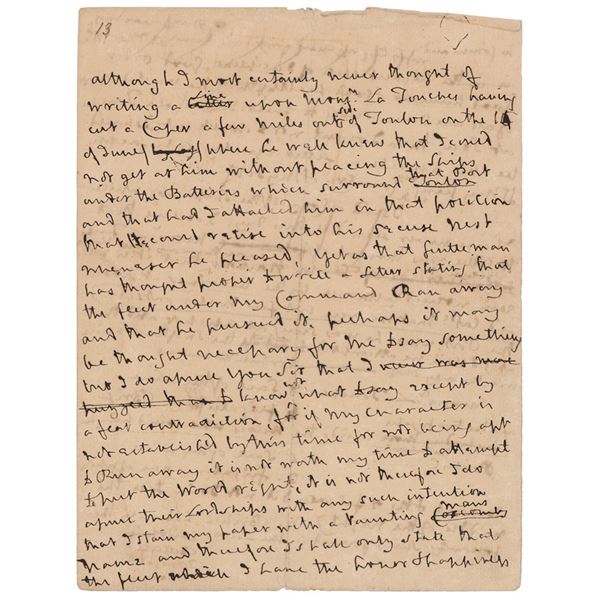 13
although I most certainly never thought of
writing a letter Line upon Monsr. La Touches having
cut a Caper a few miles outside of Toulon on the 14
of June where he well knew that I could
not get at him without placing the Ships
under the Batteries which surround that Port Toulon
and that had I attacked him in that position
that he could retire into his secure nest
whenever he pleased, Yet as that Gentleman
has thought proper to write a letter stating that
the fleet under my Command Ran away
and that he pursued it, perhaps it may
be thought necessary for me to say something
but I do assure you Sir that I never was more
know not what to say except by
a flat contradiction, for if my character is
not established by this time for not being apt
to Run away it is not worth my time to attempt
to put the World right, it is not therefore I do
assure their Lordships with any such intention
that I stain my paper with a vaunting Coxcombs mans
name and therefore I shall only state that
the fleet which I have the honor & happiness